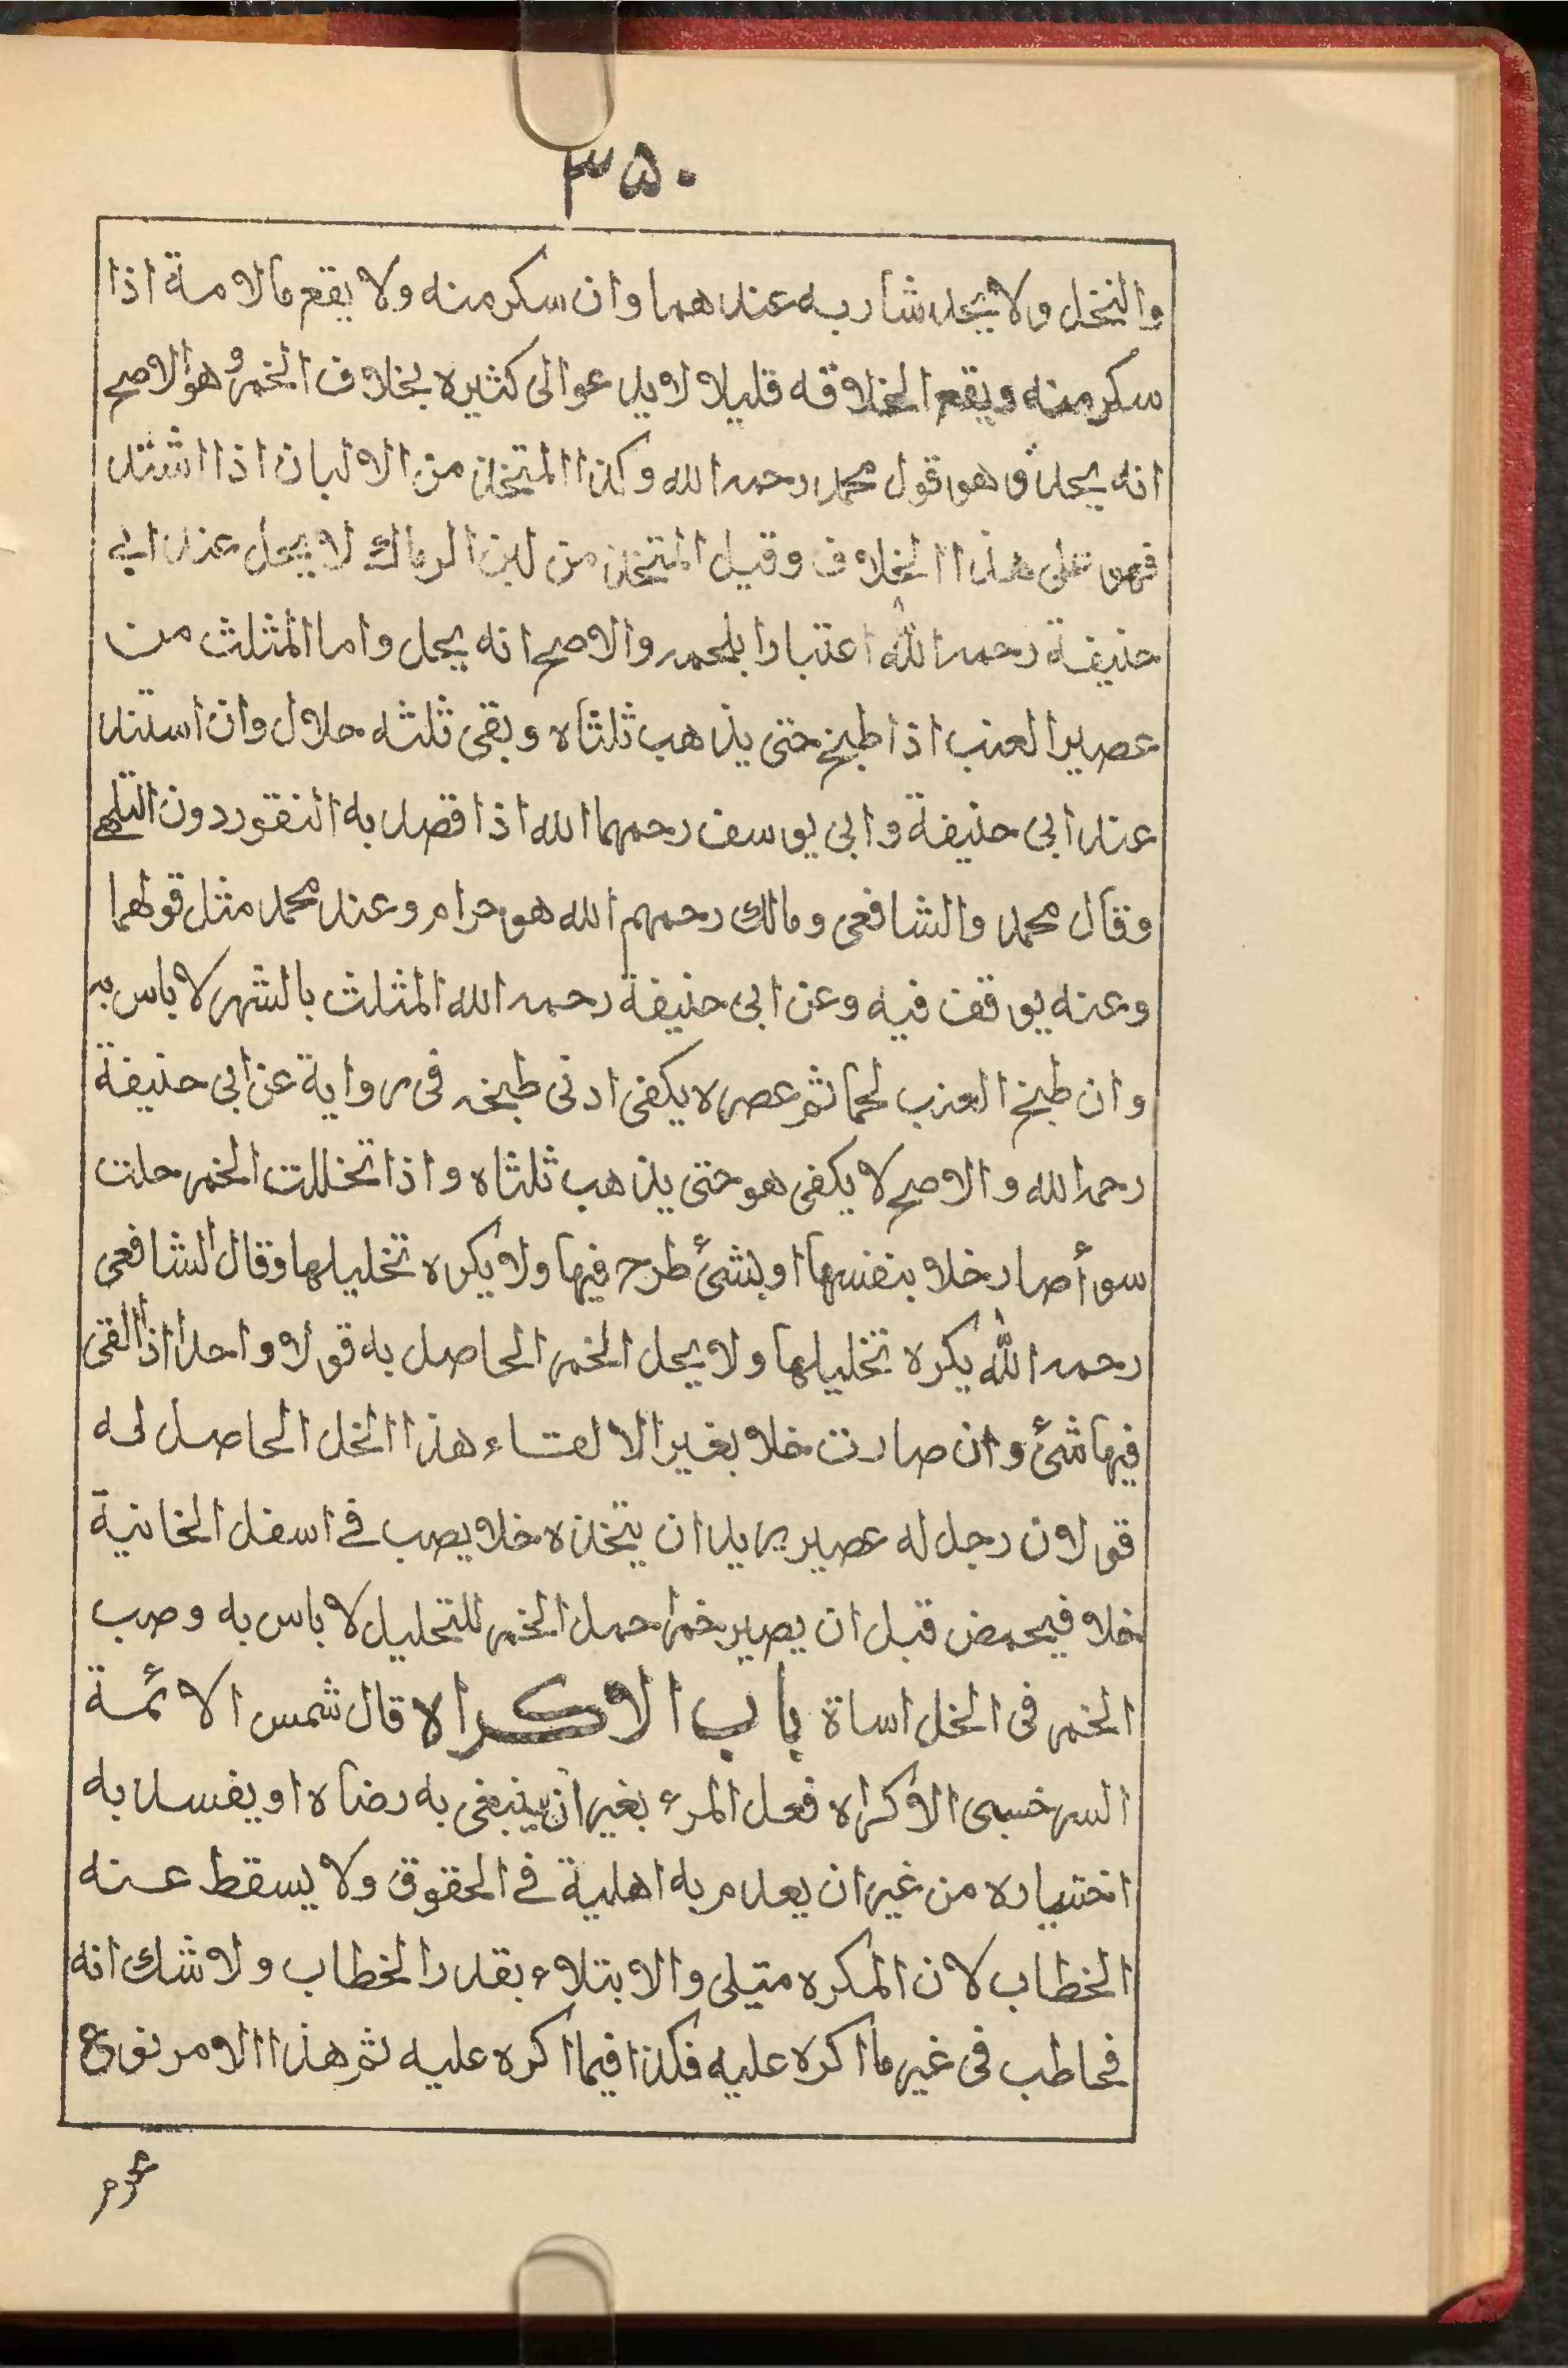 ٣٥٠
والنخل ولا يحد شاربه عندهما وان سكر منه ولا يقع مالامة اذا
سكر منه ويقع الخلاقه قليلا لا يدعوالى كثيره بخلاف الخمر وهو الاصح
انه يحد وهو قول محمد رحمه الله وكذا المتخذ من الالبان اذا اشتد
فهو على هذا الخلاف وقيل المتخذ من لبن الرماك لا يحل عند ابي
حنيفة رحمه الله اعتبارا بلحمه والاصح انه يحل واما المثلث من
عصير العنب اذا طبخ حتى يذهب ثلثاه وبقى ثلثه حلال وان استند
عند ابى حنيفة وابى يوسف رحمهما الله اذا قصد به النقور دون التلهى
وقال محمد والشافعى ومالك رحمهم الله هو حرام وعند محمد مثل قولهما
وعنه يوقف فيه وعن ابى حنيفة رحمه الله المثلث بالشهر لا باس به
وان طبخ العنب لحما ثم عصره يكفى ادنى طبخه فى رواية عن ابى حنيفة
رحمه الله والاصح لا يكفى هو حتى يذهب ثلثاه واذا تخللت الخمر حلت
سوأ صار خلا بنفسها او بشئ طرح فيها ولا يكره تخليلها وقال الشافعى
رحمه الله يكره تخليلها ولا يحل الخمر الحاصل به قولا واحدا اذا القى
فيها شئ وان صارت خلا بغير الالقاء هذا الخل الحاصل له
قولان رجل له عصير يريد ان يتخذه خلا يصب فى اسفل الخانية
خلا فيحمض قبل ان يصير خمرا حمل الخمر للتحليل لا باس به وصب
الخمر فى الخل اساة باب الاكراه قال شمس الائمة
السرخسى الاكراه فعل المرء بغير ان ينبغى به رضاه او يفسد به
اختياره من غير ان يعدم به اهلية فى الحقوق ولا يسقط عنه
الخطاب لان المكره متبلى والابتلاء بقدر الخطاب ولا شك انه
فخاطب فى غير ما اكره عليه فكذا فيما اكره عليه ثم هذا الامر نوع